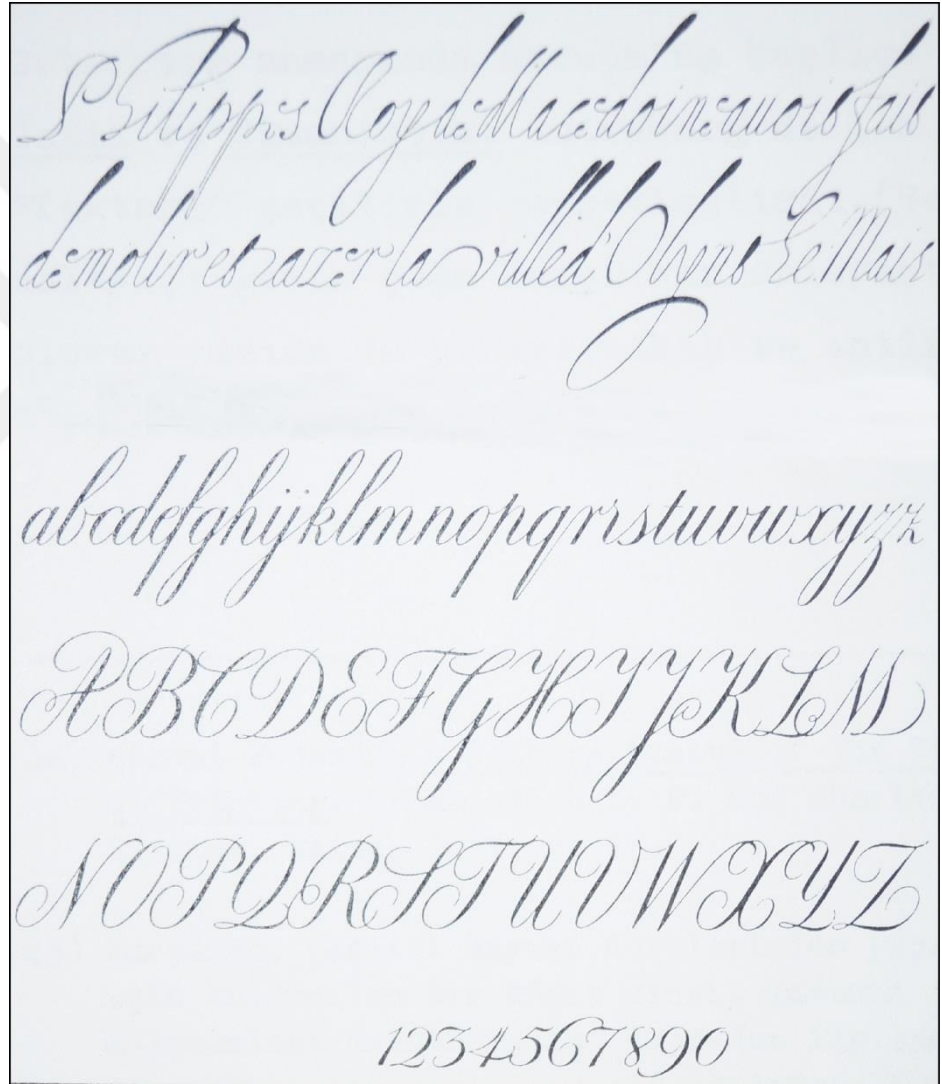 Philippes Roy de Macedoine avoit fait
demolir et razer la ville d'Olynt Le Mais
abcdefghijklmnopqrrstuvwxyzz
ABCDEFGHIJKLM
NOPQRSTUVWXYZ
1234567890